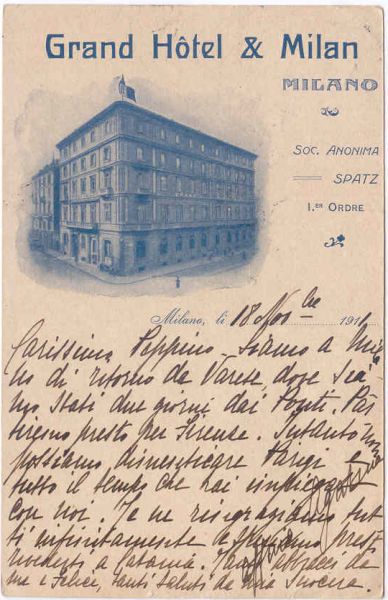 Grand Hôtel & Milan
MILANO
SOC. ANONIMA
SPATZ
1.ER ORDRE
Milano, li 18 Nov bre 191
Carissimo Peppino. Siamo a Mila
no di ritorno da Varese, dove sia
mo stati due giorni dai Ponti. Par
tiremo presto per Firenze. Intanto non
possiamo dimenticare Parigi e
tutto il tempo che hai impiegato
con noi. Te ne ringraziamo tut
ti infinitamente e speriamo presto
rivederti a Catania. Tanti abbracci da
me e Felice, tanti saluti da mia suocera.